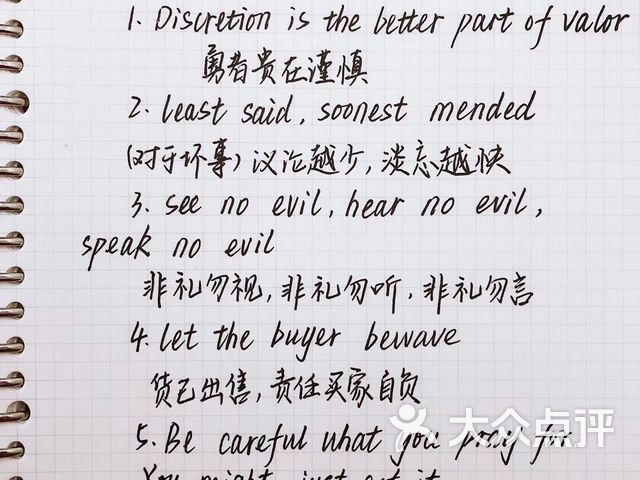 1. Discretion is the better part of valor
勇者贵在谨慎
2. least said, soonest mended
(对于坏事) 议论越少, 淡忘越快
3. see no evil, hear no evil,
speak no evil
非礼勿视, 非礼勿听, 非礼勿言
4. let the buyer bewave
货已出售, 责任买家自负
5. Be careful what you pray for
You might just get it
大众点评